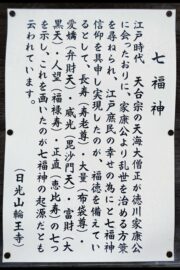 七福神
江戸時代、天台宗の天海大僧正が徳川家康公
に会ったおりに、家康公より乱を治める方策
を尋ねられ、江戸庶民の幸せの為にと七福神
信仰を具申し実現したのが、福徳を備えてい
るとして、長寿（寿老尊）・大量（布袋尊）・
愛橋（弁財天）・威光（毘沙門天）・富財（大
黒天）・人望（福禄寿）・正直（恵比寿）の七つ
を示し、これを画いたのが七福神の起源だとも
云われています。
（日光山輪王寺）